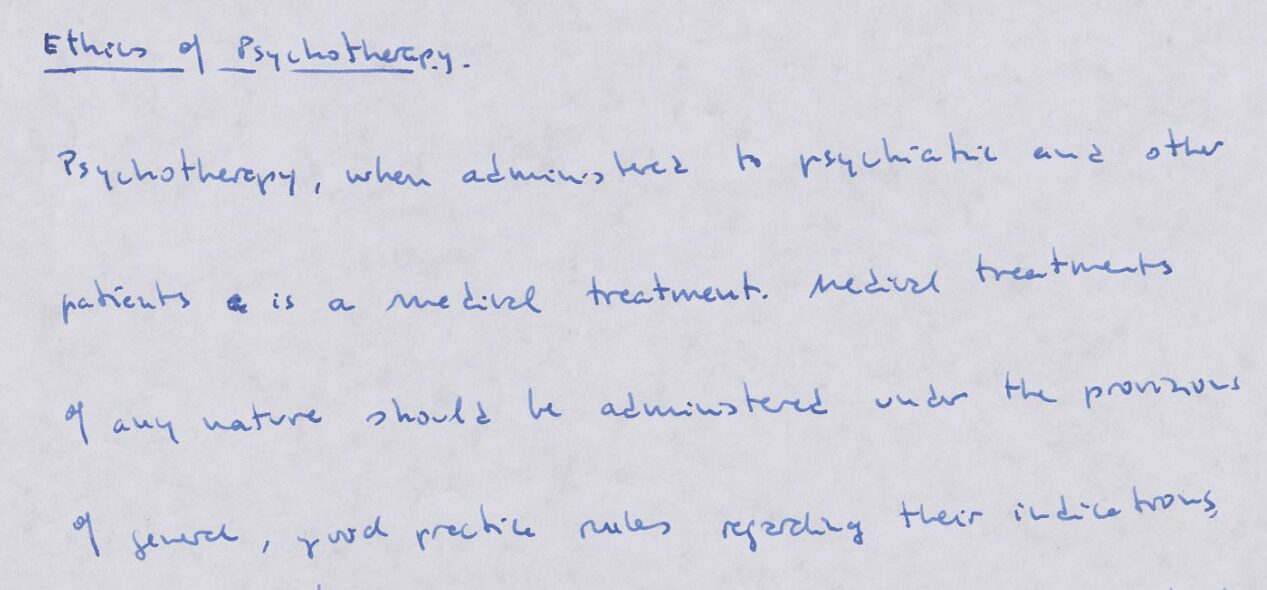 Ethics of Psychotherapy.
Psychotherapy, when administered to psychiatric and other
patients is a medical treatment. Medical treatments
of any nature should be administered under the provisions
of general, good practice rules regarding their indications,